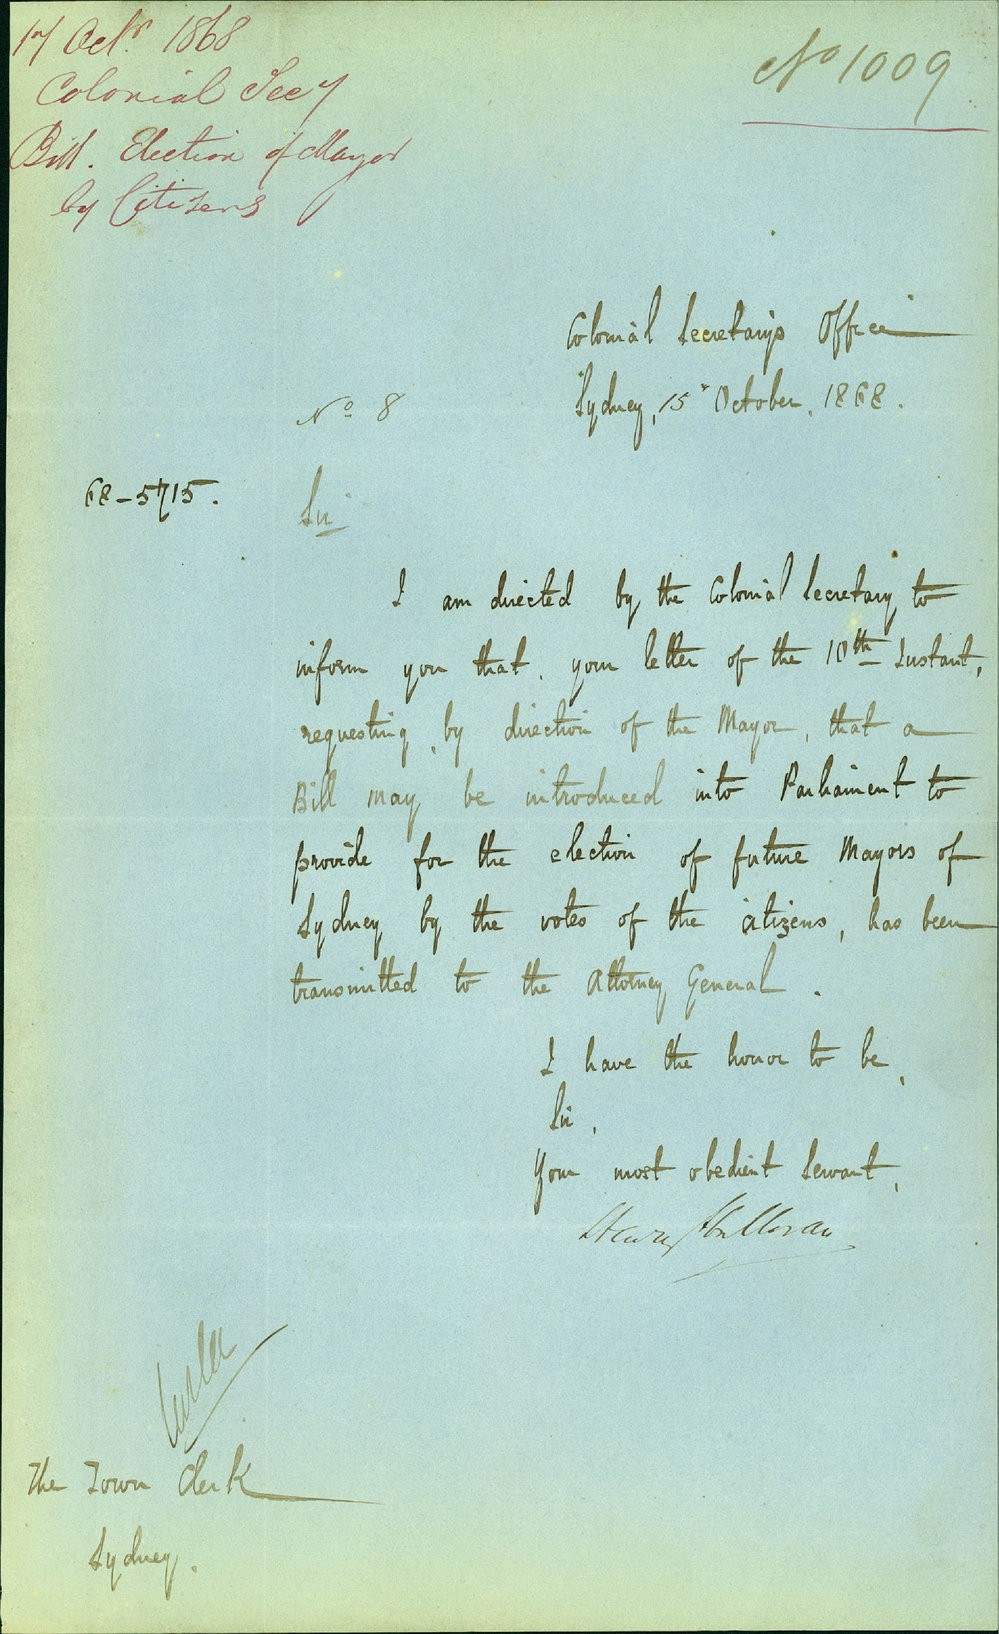 17 Octr. 1868
Colonial Secy
Bill. Election of Mayor
by Citizens
No 1009
Colonial Secretary's Office
Sydney, 15th October, 1868.
No 8
68-5715.
Sir
I am directed by the Colonial Secretary to
inform you that, your letter of the 10th Instant,
requesting, by direction of the Mayor, that a
Bill may be introduced into Parliament to
provide for the election of future Mayors of
Sydney by the votes of the citizens, has been
transmitted to the Attorney General.
I have the honor to be,
Sir,
Your most obedient Servant,
Henry Halloran
The Town Clerk
Sydney.